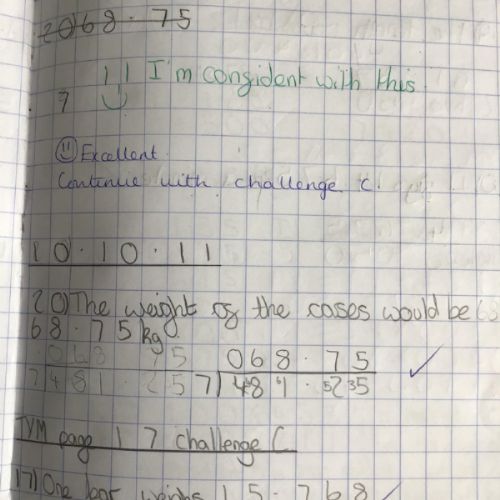 2068.75
I'm congident with this.
7
Excellent.
Continue with challenge C.
10.10.11
20) The weight of the cases would be
68.75kg
068 75 068.75
7 481.257) 481.25
TYM page 17 challenge C
17) One bag weighs 15.768